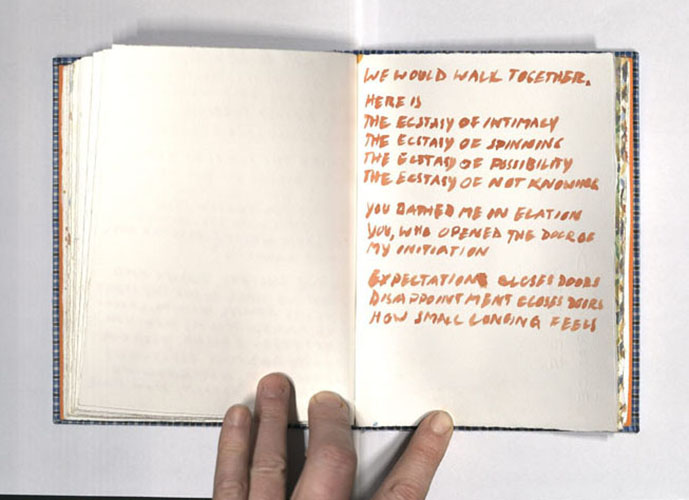 WE WOULD WALK TOGETHER.
HERE IS
THE ECSTASY OF INTIMACY
THE ECSTASY OF SPINNING
THE ECSTASY OF POSSIBILITY
THE ECSTASY OF NOT KNOWING
YOU BATHED ME IN ELATION
YOU, WHO OPENED THE DOOR OF
MY INITIATION
EXPECTATIONS CLOSES DOORS
DISAPPOINTMENT CLOSES DOORS
HOW SMALL LONGING FEELS